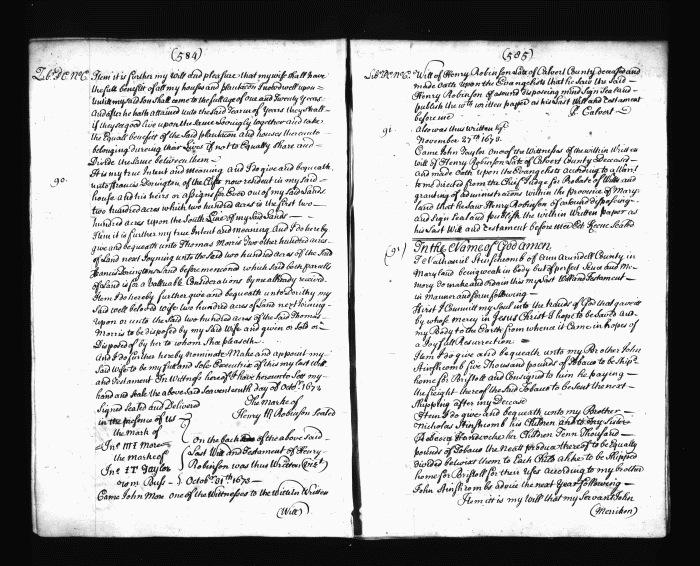 (584)
Item it is further my will and pleasure that my wife shall have
the full benefit of all my houses and plantacon I now dwell upon
untill my said son shall come to the full age of one and twenty years
And after he hath attained unto the said years they shall
if they soe good live upon the same Loveingly together and take
the Equall benefitt of the said plantacon and houses thereunto
belonging dureing their Lives if not to Equally share and
Divide the same between them
90.
It is my true Intent and meaning And I do give & bequeath
unto Francis Dorington of the Clifts now resident in my said
house and his heirs or assignes for Ever out of my said Lands
two hundred acres which two hundred acres is the first two
hundred acres upon the South Line of my said Lands
Item it is further my true Intent and meaning And I do hereby
give and bequeath unto Thomas Morris Two other hundred acres
of Land next Joyning unto the said two hundred acres of the said
Francis Doringtons Land before mentioned which said both parcells
of Land is for a Valluable Consideracons by me already received
Item I do hereby further give and bequeath unto Dorithy my
said well beloved wife two hundred acres of Land next Joining
upon or unto the said two hundred acres of the said Thomas
Morris to be disposed by my said wife and given or sold or
Disposed of by her to whom Shee pleaseth
And I do further hereby nominate Make and appoint my
said wife to be my full and sole Executrix of this my last will
and Testament In Witness hereof I have hereunto sett my
hand and seale the above said Seaventeenth day of Octobr. 1673
Signed Sealed and Delivered
The Marke of
in the presence of us
Henry R Robinson Sealed
the mark of
Jno M More
the marke of
Jno IT Taylor
Buss
On the back side of the above said
Last Will and Testament of Henry
Robinson was thus Written (vizt)
Octobr. 31th 1673
Came John More one of the Wittnesses to the within Written
(Will)
(585)
Will of Henry Robinson Late of Calvert County deceased and
made Oath upon the Evangelists that he saw the said
Henry Robinson of a sound disposeing mind Sign Seal and
publish the wth. written paper as his Last Will and Testament
before me
Calvert
91.
Also was thus written
November 27th 1673.
Came John Taylor one of the Wittnesses of the within Written
will of Henry Robinson Late of Calvert County Deceased
and made Oath upon the Evangelists according to a
to me directed from the Chief Judge for Probate of Wills and
granting of administrations within the province of Mary
Land that he saw Henry Robinson of a sound disposing
and Sign Seal and publish the within written paper as
his Last Will and Testament before me
(91)
In the Name of God amen
I Nathaniel Stinchcomb of Ann Arundell County in
Maryland being weak in body but of perfect Sence and Me-
mory Do make and ordain this my Last Will and Testament
in Manner and form following
First I Committ my Soul into the hands of God that gave it
by whose mercy in Jesus Christ I hope to be Saved And
my Body to the Earth from whence it Came in hopes of
a Joyfull Resurrection
Item I do give and bequeath unto my Brother John
Stinchcomb five Thousand pounds of Tobaco to be Shipt
home for Bristoll and Consigned to him he paying
the freight thereof the said Tobacco to be sent the next
Shipping after my Decease
Item I do give and bequeath unto my Brother
Nicholas Stinchcomb his Children and to my Sister
Rebecca her Children Tenn Thousand
pounds of Tobacco the Neat produce thereof to be Equally
divided betwixt them to Each Child alike to be Shipped
home for Bristoll for their Use According to my brother
John Stinchcombs advice the next Year following
Item it is my will that my Servant John
(Merriken)